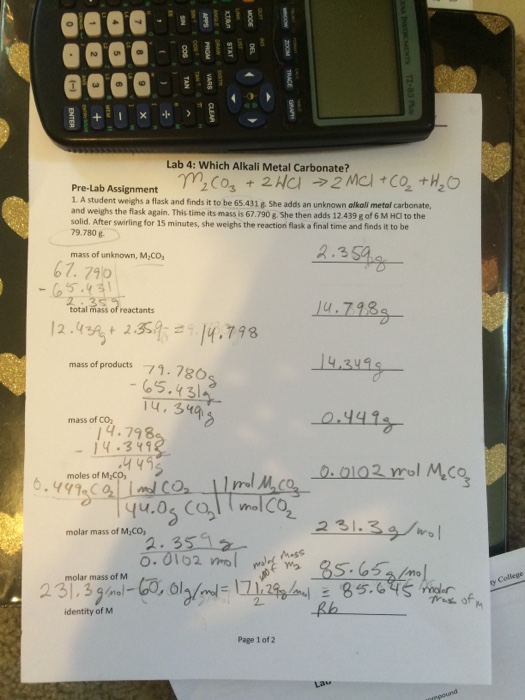 TI-83 Plus
WINDOW ZOOM TRACE GRAPH
MODE DEL
STAT
APPS PRGM VARS CLEAR
SIN COS TAN ^
( ) ÷
7 8 9 ×
4 5 6 −
1 2 3 +
0 . (-) ENTER
Lab 4: Which Alkali Metal Carbonate?
M₂CO₃ + 2HCl → 2MCl + CO₂ + H₂O
Pre-Lab Assignment
1. A student weighs a flask and finds it to be 65.431 g. She adds an unknown alkali metal carbonate,
and weighs the flask again. This time its mass is 67.790 g. She then adds 12.439 g of 6 M HCl to the
solid. After swirling for 15 minutes, she weighs the reaction flask a final time and finds it to be
79.780 g.
mass of unknown, M₂CO₃
2.359g
67.790
- 65.431
2.359
total mass of reactants
14.798g
12.439g + 2.359g = 14.798
mass of products
79.780g
14.349g
- 65.431g
14.349g
mass of CO₂
0.449g
14.798g
- 14.349g
.449g
moles of M₂CO₃
0.0102 mol M₂CO₃
0.449g CO₂ | 1 mol CO₂ | 1 mol M₂CO₃
44.0g CO₂ | 1 mol CO₂
molar mass of M₂CO₃
231.3g/mol
2.359g
0.0102 mol
molar mass of M₂
molar mass of M
85.65g/mol
231.3g/mol - 60.01g/mol = 171.29g/mol = 85.645 molar mass of M
2
identity of M
Rb
Page 1 of 2
y College
Lab
mpound